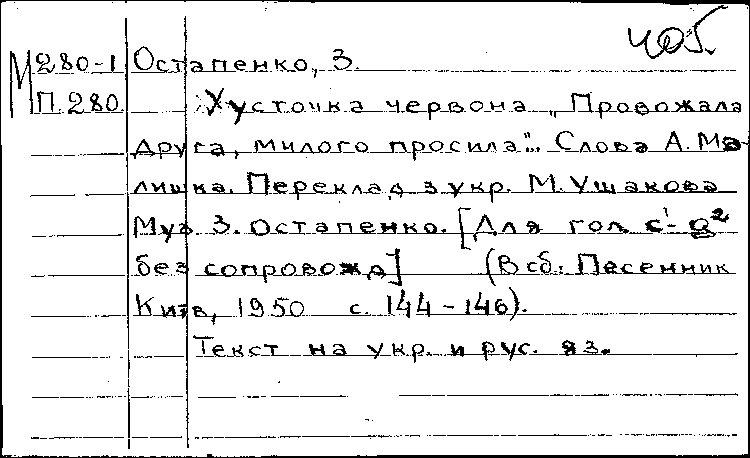 чоб.
М 280-1 Остапенко, З.
П.280. Хусточка червона „Провожала
друга, милого просила". Слова А. Ма-
лишка. Переклад з укр. М. Ушакова
Муз. З. Остапенко. [Для гол. c¹- g²
без сопровожд] (В сб.: Песенник
Київ, 1950 с. 144-146).
Текст на укр. и рус. яз.